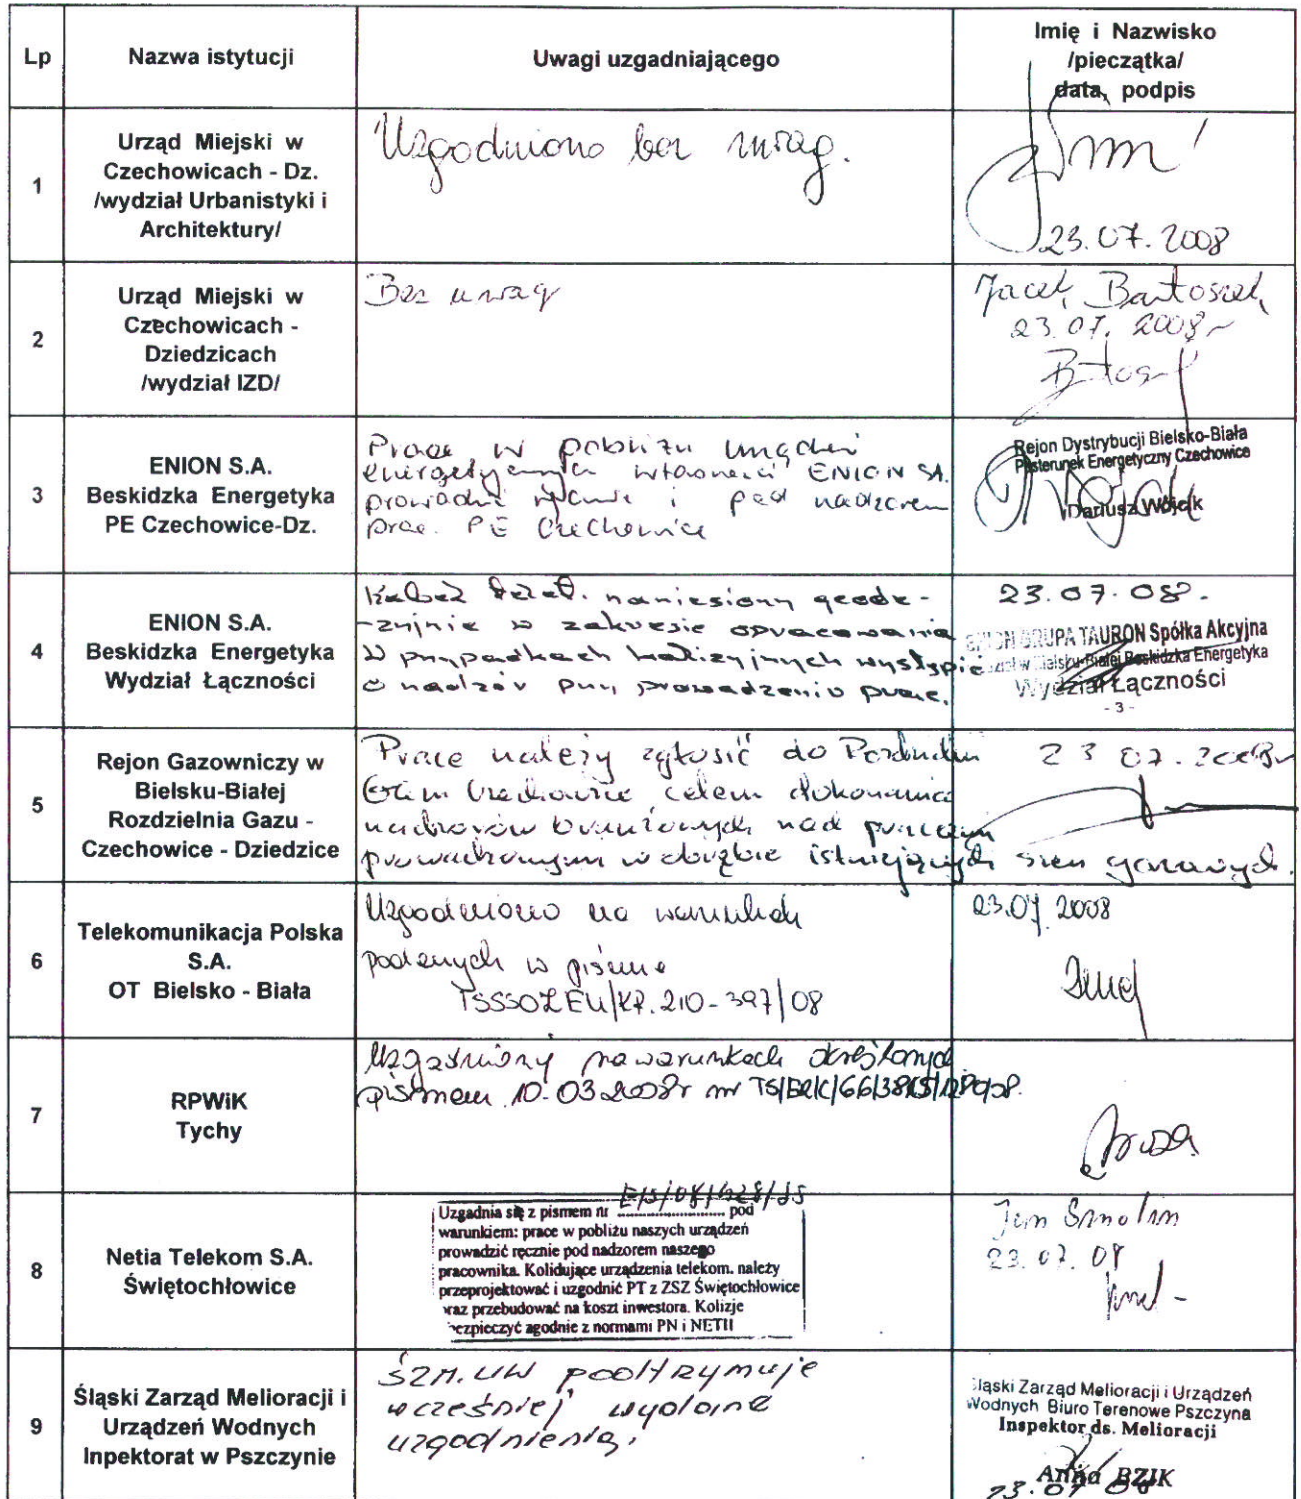 Lp
Nazwa istytucji
Uwagi uzgadniającego
Imię i Nazwisko
/pieczątka/
data, podpis
1
Urząd Miejski w
Czechowicach - Dz.
/wydział Urbanistyki i
Architektury/
Uzgodniono bez uwag.
23.07.2008
2
Urząd Miejski w
Czechowicach -
Dziedzicach
/wydział IZD/
Bez uwag
Jacek Bartoszek
23.07.2008r
3
ENION S.A.
Beskidzka Energetyka
PE Czechowice-Dz.
Prace w pobliżu urządzeń
energetycznych własności ENION SA.
prowadzić ręcznie i pod nadzorem
prac. PE Czechowice
Rejon Dystrybucji Bielsko-Biała
Posterunek Energetyczny Czechowice
Dariusz Wójcik
4
ENION S.A.
Beskidzka Energetyka
Wydział Łączności
Kabel naniesiony geode-
-zyjnie w zakresie opracowania
W przypadkach kolizyjnych wystąpić
o nadzór przy prowadzeniu prac.
23.07.08.
GRUPA TAURON Spółka Akcyjna
w Bielsku-Białej Beskidzka Energetyka
Wydział Łączności
- 3 -
5
Rejon Gazowniczy w
Bielsku-Białej
Rozdzielnia Gazu -
Czechowice - Dziedzice
Prace należy zgłosić do
Czechowice celem dokonania
nadzorów branżowych nad pracami
prowadzonymi w obrębie istniejących sieci gazowych.
23 07.2008r
6
Telekomunikacja Polska
S.A.
OT Bielsko - Biała
Uzgodniono na warunkach
podanych w piśmie
210-397/08
23.07.2008
7
RPWiK
Tychy
Uzgodniony na warunkach określonych
pismem 10.03.2008r nr
8
Netia Telekom S.A.
Świętochłowice
Uzgadnia się z pismem nr pod
warunkiem: prace w pobliżu naszych urządzeń
prowadzić ręcznie pod nadzorem naszego
pracownika. Kolidujące urządzenia telekom. należy
przeprojektować i uzgodnić PT z ZSZ Świętochłowice
oraz przebudować na koszt inwestora. Kolizje
zabezpieczyć zgodnie z normami PN i NETII
Jan
23.07.08
9
Śląski Zarząd Melioracji i
Urządzeń Wodnych
Inpektorat w Pszczynie
ŚZM.UW podtrzymuje
wcześniej wydane
uzgodnienia.
Śląski Zarząd Melioracji i Urządzeń
Wodnych Biuro Terenowe Pszczyna
Inspektor ds. Melioracji
Anna BZIK
23.07.08